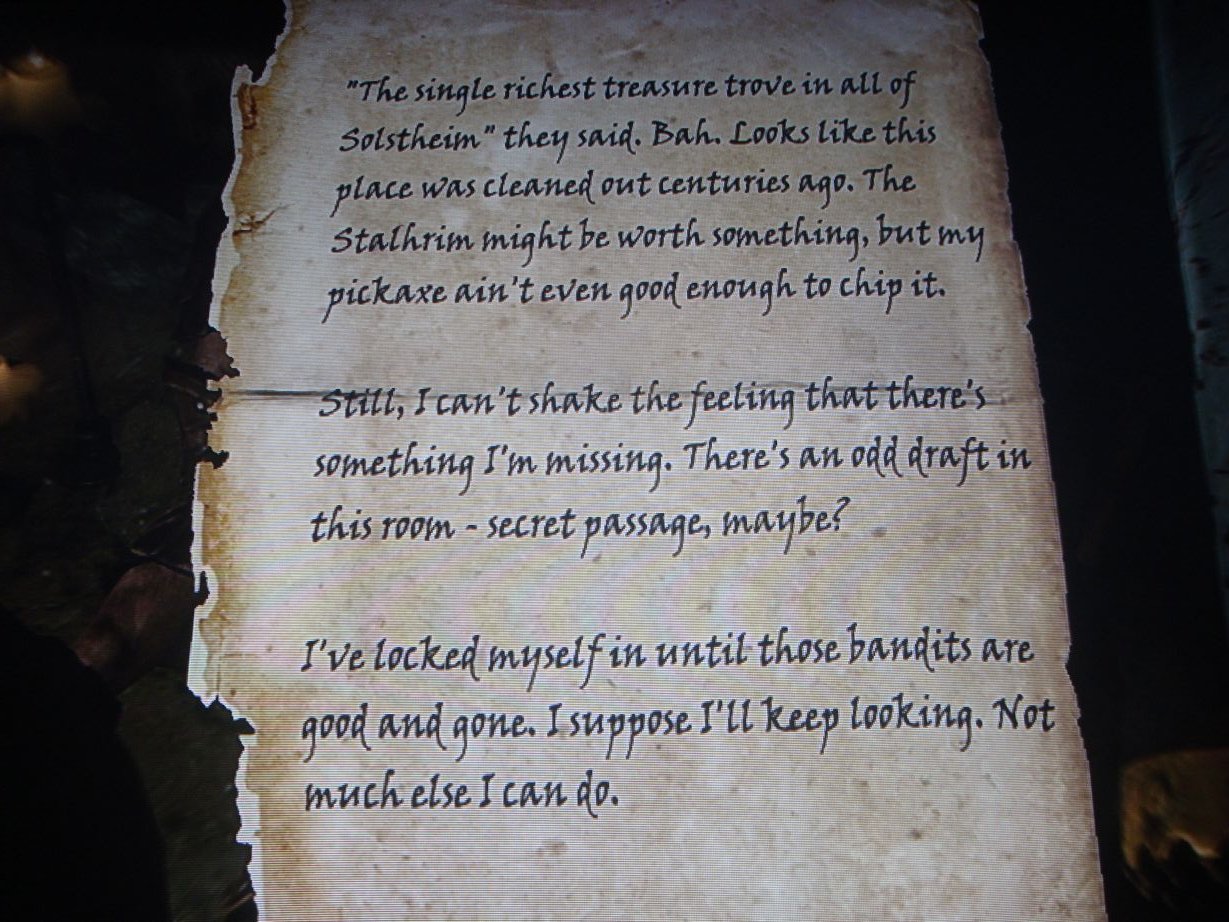 "The single richest treasure trove in all of
Solstheim" they said. Bah. Looks like this
place was cleaned out centuries ago. The
Stalhrim might be worth something, but my
pickaxe ain't even good enough to chip it.
Still, I can't shake the feeling that there's
something I'm missing. There's an odd draft in
this room - secret passage, maybe?
I've locked myself in until those bandits are
good and gone. I suppose I'll keep looking. Not
much else I can do.